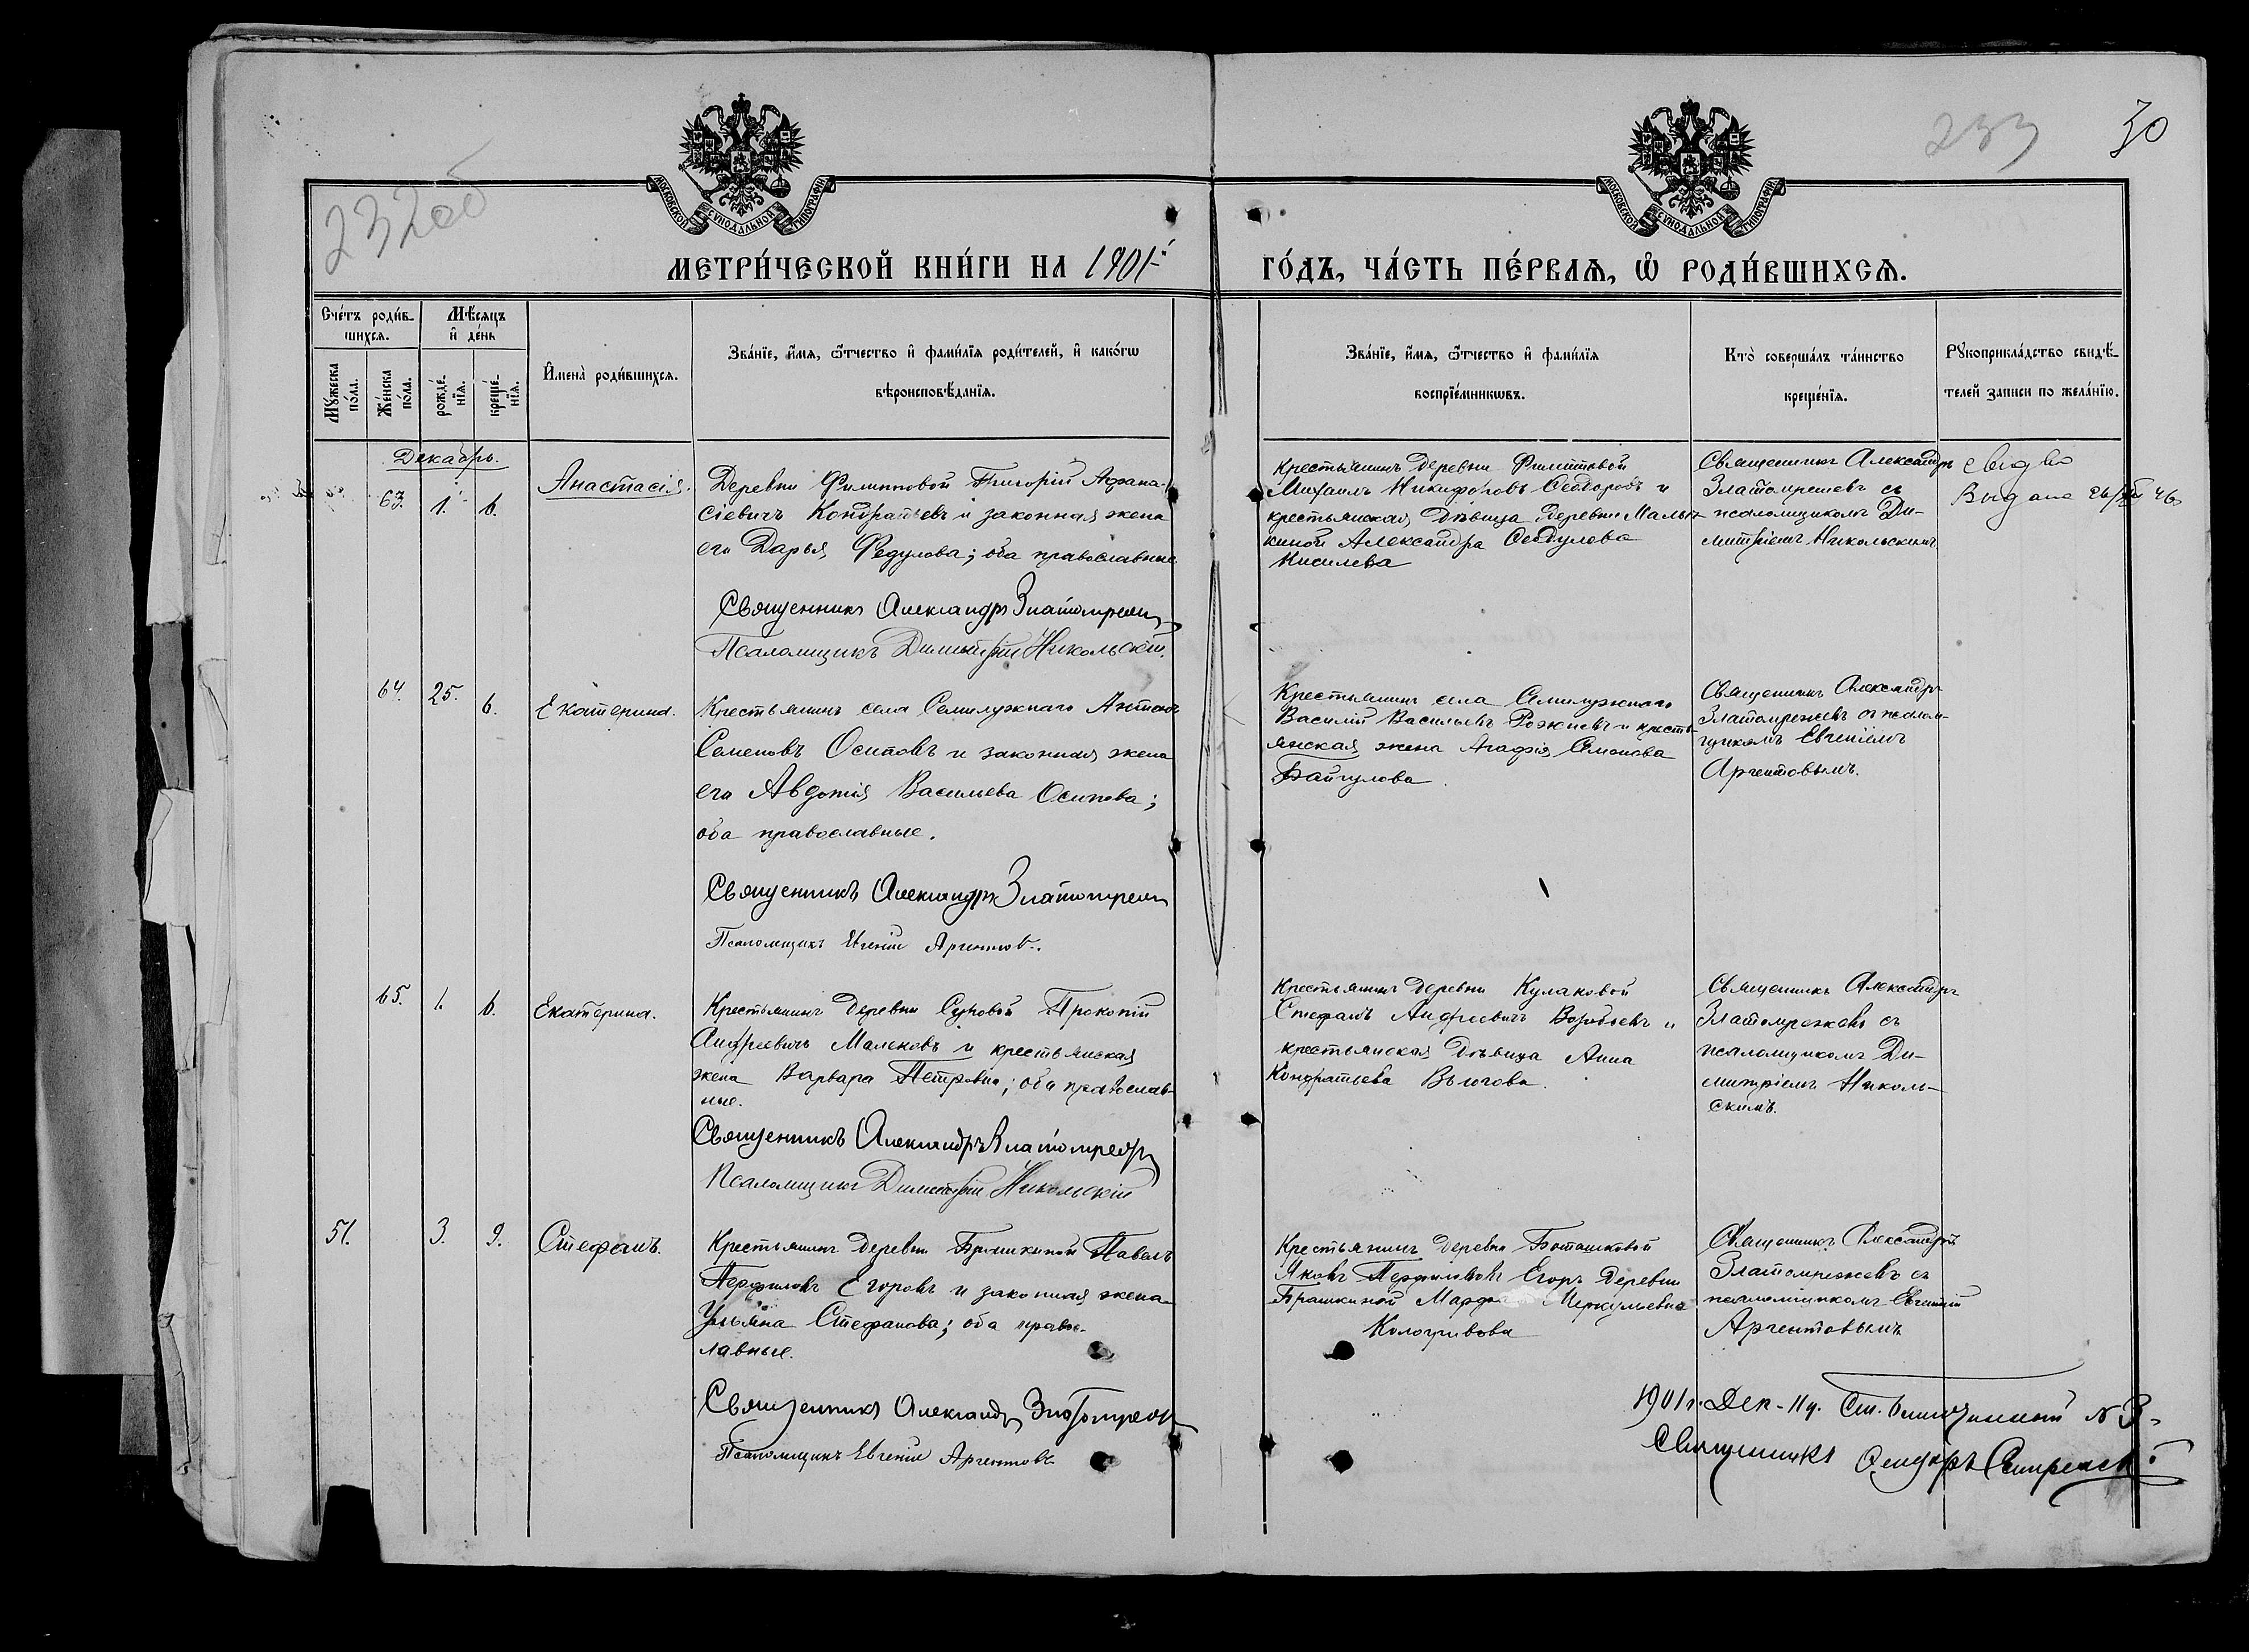 232 об
233
30
МОСКОВСКОЙ СѴНОДАЛЬНОЙ ТИПОГРАФІИ
МОСКОВСКОЙ СѴНОДАЛЬНОЙ ТИПОГРАФІИ
МЕТРИ́ЧЕСКОЙ КНИ́ГИ НА 1901-й
ГО́ДЪ, ЧА́СТЬ ПЕ́РВАѦ, Ѡ РОДИ́ВШИХСѦ.
Сче́тъ роди́в-
шихсѧ.
Мꙋ́жеска
по́ла.
Же́нска
по́ла.
Мѣ́сѧцъ
и҆ де́нь
рожде́-
нїѧ.
креще́-
нїѧ.
И҆мена̀ роди́вшихсѧ.
Зва́нїе, и҆́мѧ, ѻ҆́тчество и҆ фами́лїѧ роди́телей, и҆ како́гѡ
вѣроисповѣ́данїѧ.
Зва́нїе, и҆́мѧ, ѻ҆́тчество и҆ фами́лїѧ
воспрїе́мникѡвъ.
Кто̀ соверша́лъ та́инство
креще́нїѧ.
Рꙋкоприкла́дство свидѣ́-
телей записи по жела́нїю.
Декабрь.
63. 1. 6. Анастасія.
Деревни Филипповой Григорій Афана-
сіевичъ Кондратьевъ и законная жена
его Дарья Федулова; оба православные
Священникъ Александръ Златомрежев
Псаломщикъ Димитрій Никольскій.
Крестьянинъ деревни Филипповой
Михаилъ Никифоровъ Ѳеодоровъ и
крестьянская дѣвица деревни Малы-
киной Александра Ѳеодулова
Киселева
Священникъ Александръ
Златомрежевъ съ
псаломщикомъ Ди-
митріемъ Никольскимъ.
свид во
Выдано 26/XII 46
64. 25. 6. Екатерина.
Крестьянинъ села Семилужнаго Антонъ
Семеновъ Осиповъ и законная жена
его Авдотія Васильева Осипова;
оба православные.
Священникъ Александръ Златомрежев
Псаломщикъ Евгеній Аргентовъ.
Крестьянинъ села Семилужнаго
Василій Васильевъ Рожневъ и кресть-
янская жена Агафія Симонова
Байгулова.
Священникъ Александръ
Златомрежевъ съ псалом-
щикомъ Евгеніемъ
Аргентовымъ.
65. 1. 6. Екатерина.
Крестьянинъ деревни Суровой Прокопій
Андреевичъ Малековъ и крестьянская
жена Варвара Петровна; оба православ-
ные.
Священникъ Александръ Златомрежев
Псаломщикъ Димитрій Никольскій
Крестьянинъ деревни Кулаковой
Стефанъ Андреевичъ Воробьевъ и
крестьянская дѣвица Анна
Кондратьева Вьюгова.
Священникъ Александръ
Златомрежевъ съ
псаломщикомъ Ди-
митріемъ Николь-
скимъ.
51. 3. 9. Стефанъ.
Крестьянинъ деревни Брашкиной Павелъ
Перфиловъ Егоровъ и законная жена
Ульяна Стефанова; оба правос-
лавные.
Священникъ Александръ Златомрежев
Псаломщикъ Евгеній Аргентовъ
Крестьянинъ деревни Боташковой
Яковъ Перфильевъ Егоръ деревни
Брашкиной Марфа Меркульевна
Кологривова
Священникъ Александръ
Златомрежевъ съ
псаломщикомъ Евгеній
Аргентовымъ
1901 г. Дек. 11 д. Св. Благочинный № 3-
Священникъ